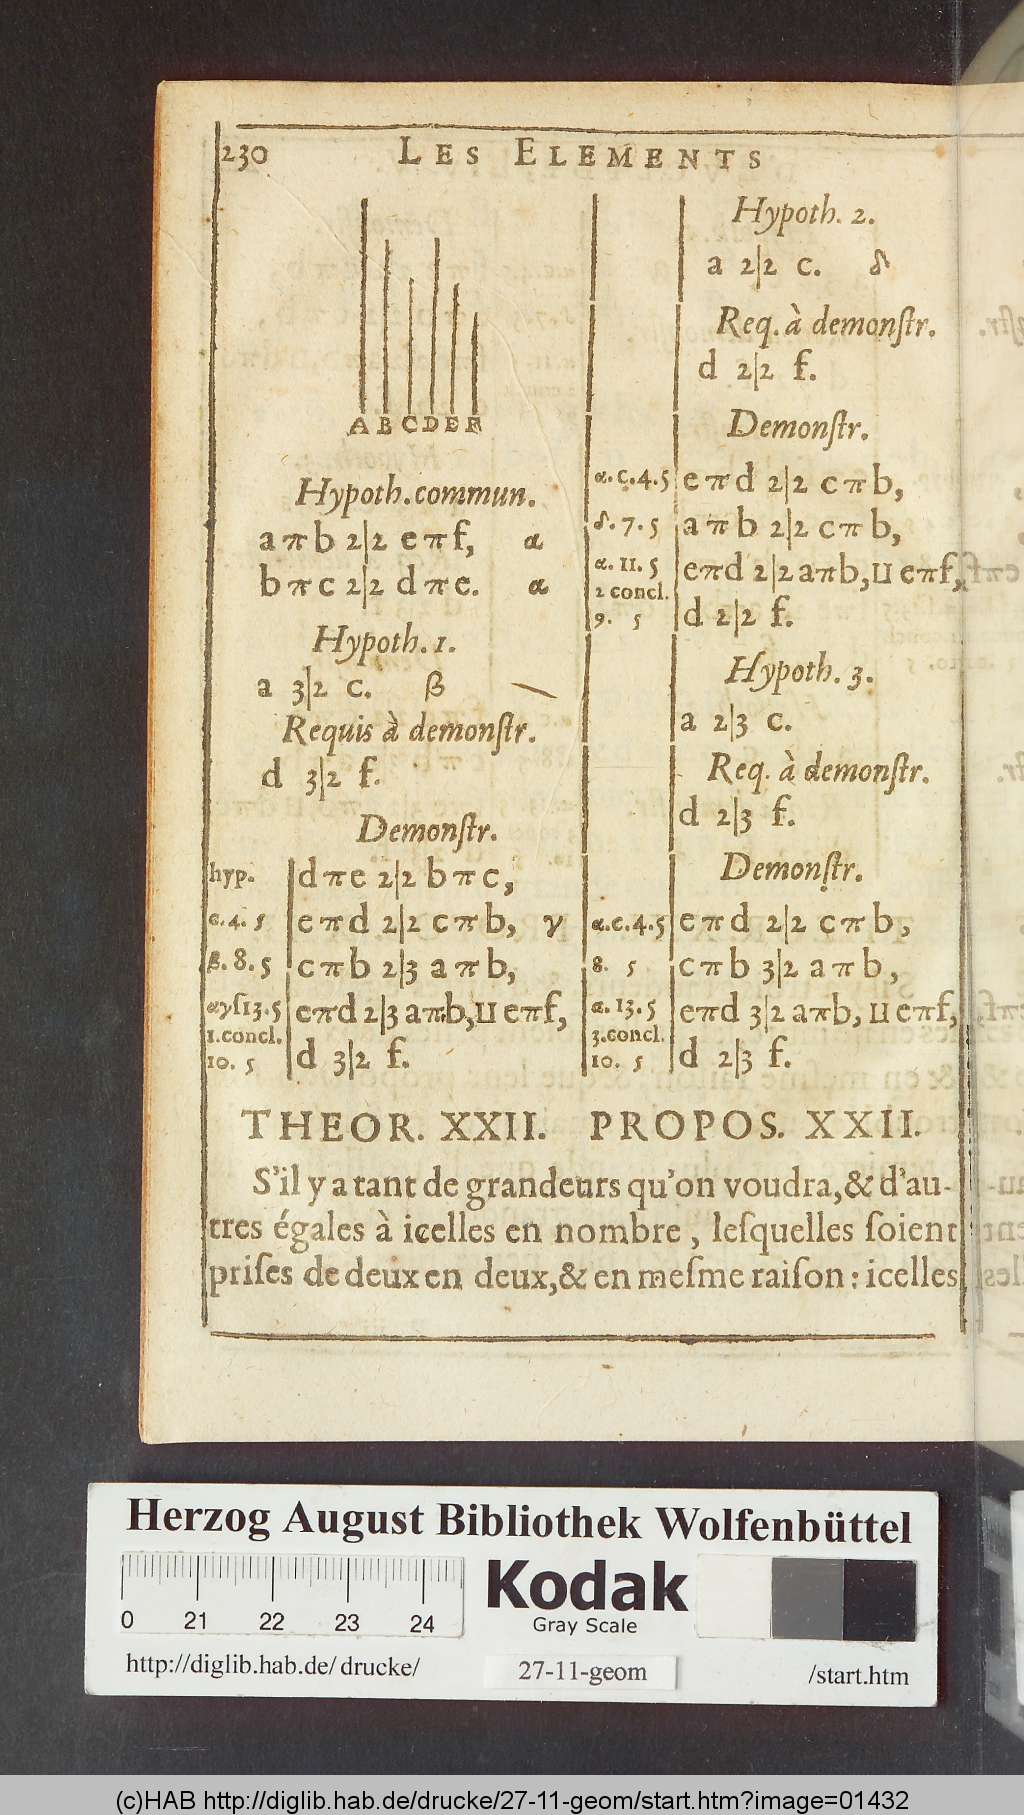 230 LES ELEMENTS
A B C D E F
Hypoth. commun.
a π b 2|2 e π f, α
b π c 2|2 d π e. α
Hypoth. 1.
a 3|2 c. β
Requis à demonſtr.
d 3|2 f.
Demonſtr.
hyp. d π e 2|2 b π c,
c. 4. 5 e π d 2|2 c π b, γ
β. 8. 5 c π b 2|3 a π b,
αγſ13.5 eπd 2|3 aπb, ⊔ eπf,
1.concl.
10. 5 d 3|2 f.
Hypoth. 2.
a 2|2 c. δ
Req. à demonſtr.
d 2|2 f.
Demonſtr.
α.c.4.5 e π d 2|2 c π b,
δ. 7. 5 a π b 2|2 c π b,
α. 11. 5 eπd 2|2 aπb, ⊔ eπf,
2 concl.
9. 5 d 2|2 f.
Hypoth. 3.
a 2|3 c.
Req. à demonſtr.
d 2|3 f.
Demonſtr.
α.c.4.5 e π d 2|2 c π b,
8. 5 c π b 3|2 a π b,
α. 13. 5 eπd 3|2 aπb, ⊔ eπf,
3.concl.
10. 5 d 2|3 f.
THEOR. XXII. PROPOS. XXII.
S'il y a tant de grandeurs qu'on voudra, & d'au-
tres égales à icelles en nombre, leſquelles ſoient
priſes de deux en deux, & en meſme raiſon: icelles
Herzog August Bibliothek Wolfenbüttel
0 21 22 23 24
Kodak
Gray Scale
http://diglib.hab.de/drucke/ 27-11-geom /start.htm
(c)HAB http://diglib.hab.de/drucke/27-11-geom/start.htm?image=01432